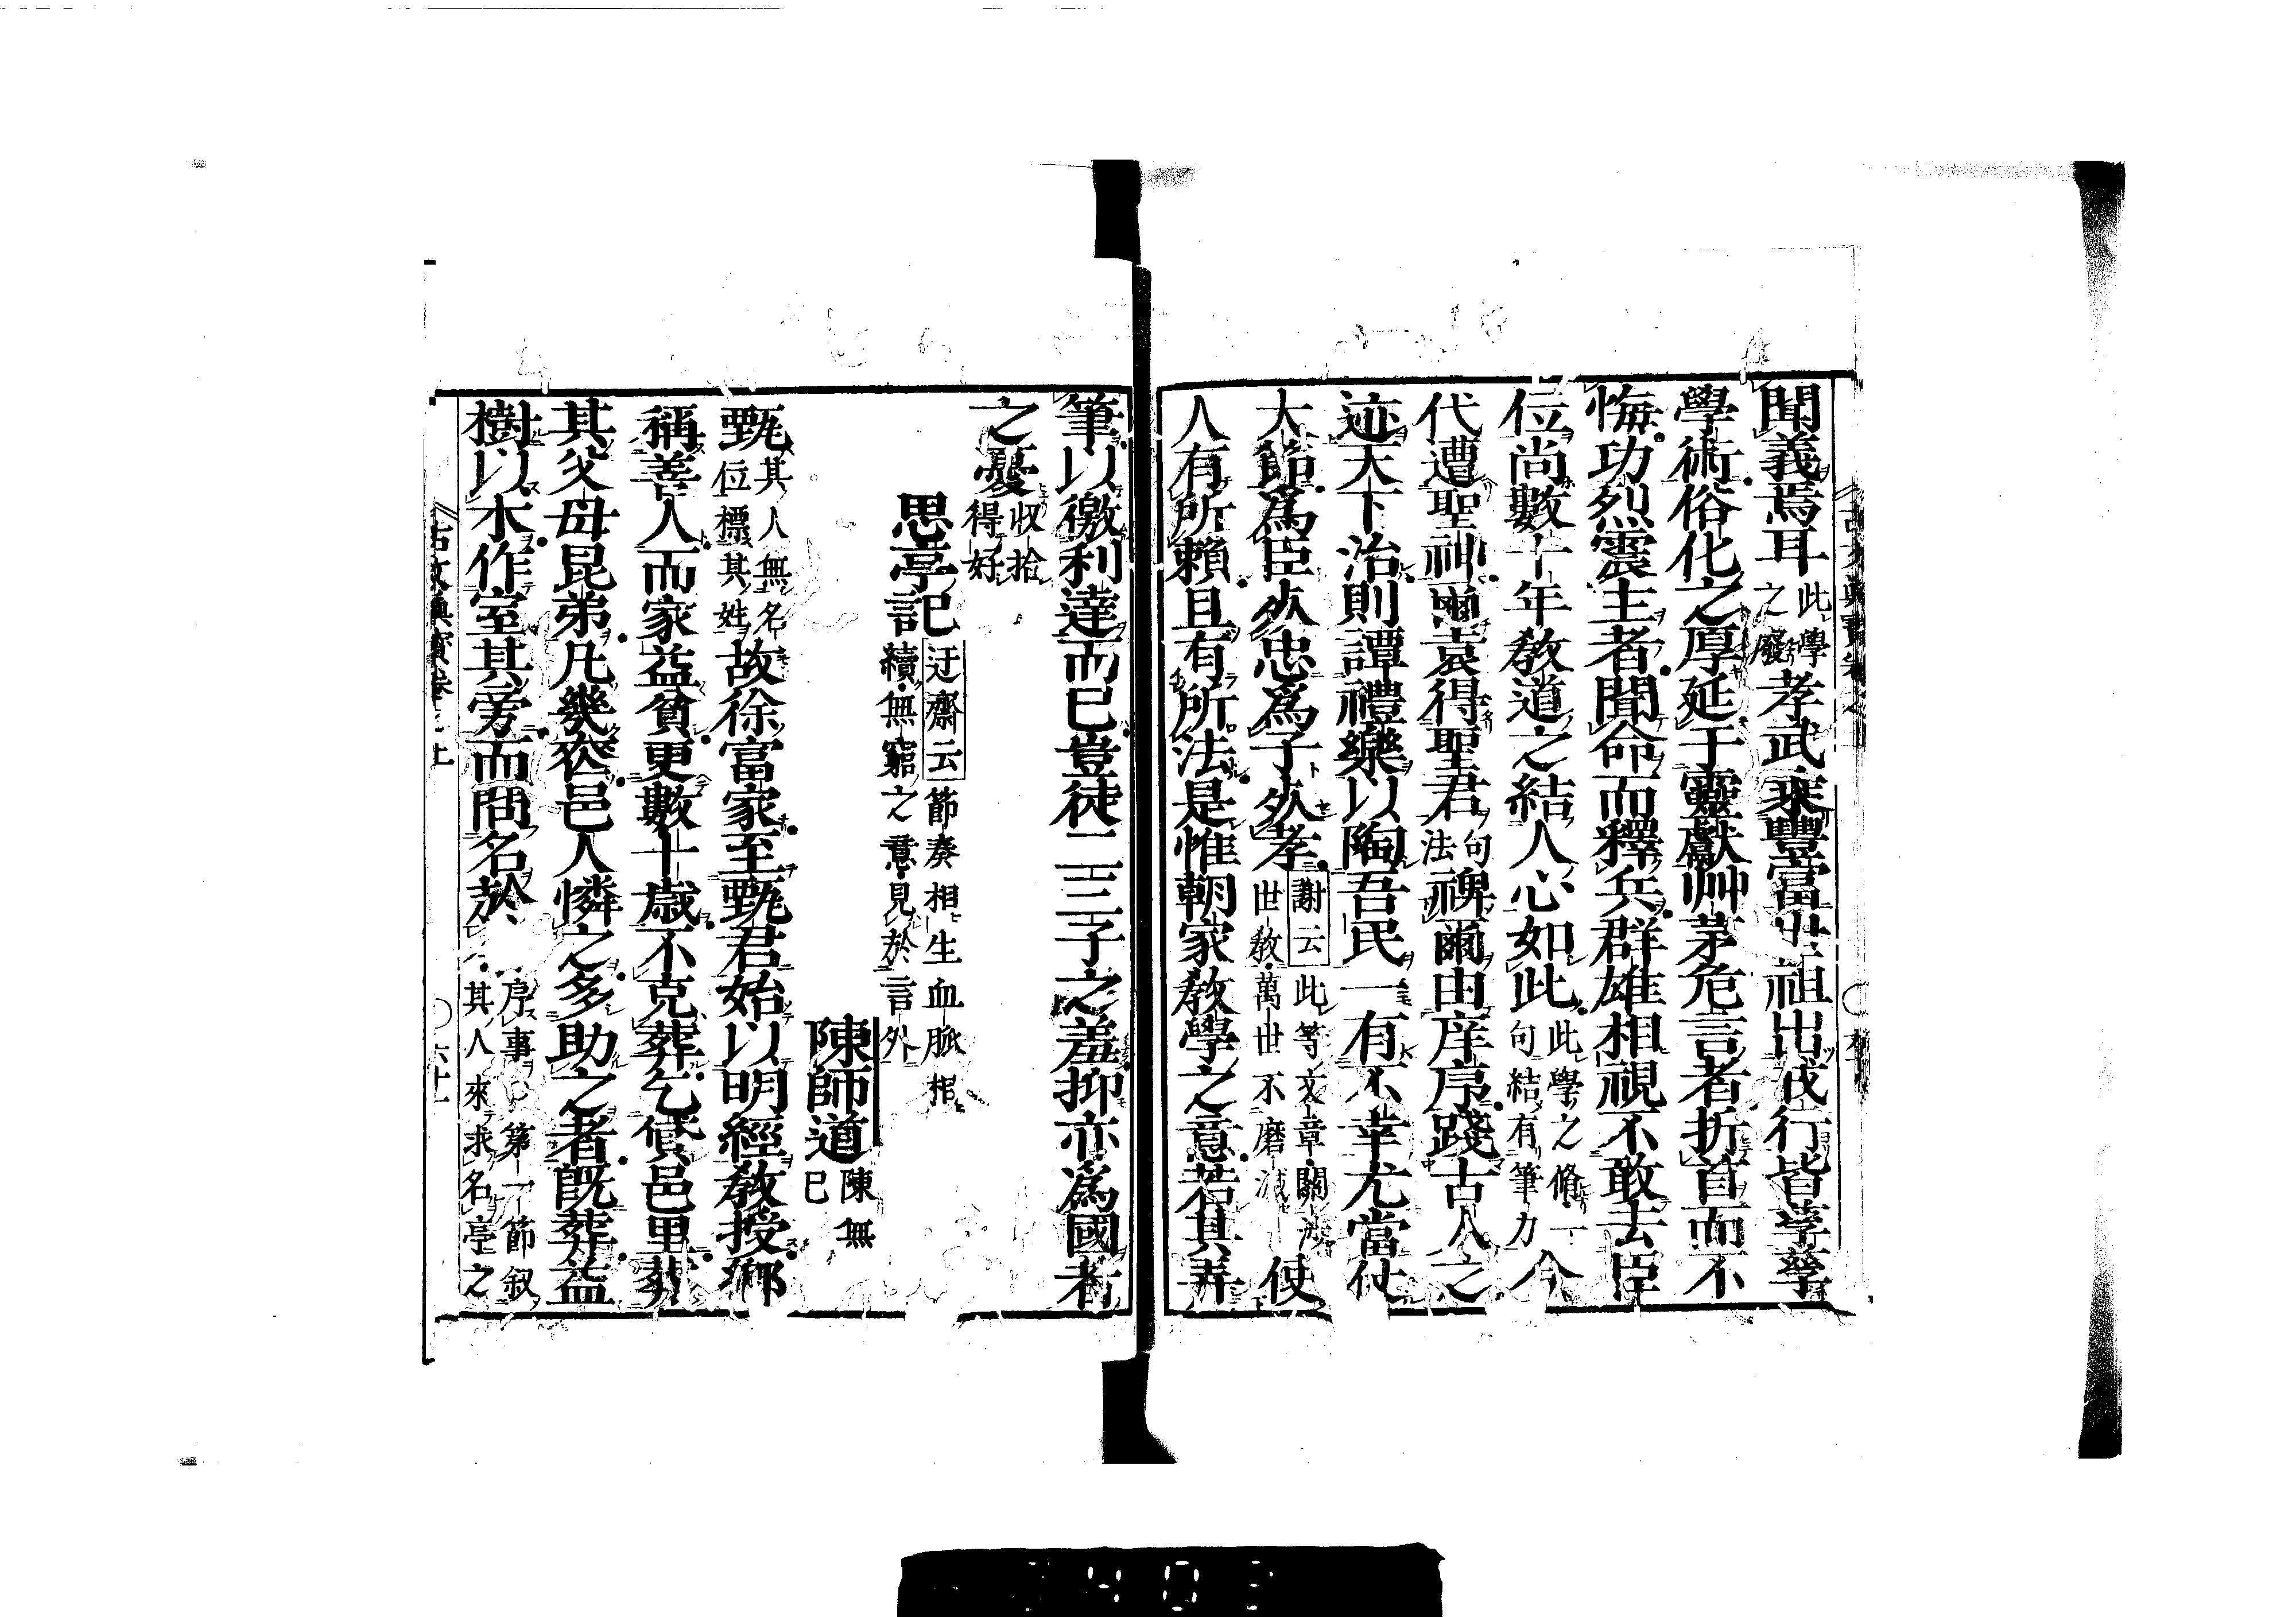 聞義焉耳此學之廢孝武乘豐富世祖出戎行皆孳孳
學術俗化之厚延于靈獻艸茅危言者折首而不
悔功烈震主者聞命而釋兵群雄相視不敢去臣
位尚數十年教道之結人心如此此學之脩一句結有筆力今
代遭聖神爾袁得聖君句法俾爾由庠序踐古人之
迹天下治則譚禮樂以陶吾民一有不幸尤當仗
大節爲臣死忠爲子死孝謝云此等文章關世教萬世不磨滅使
人有所賴且有所法是惟朝家教學之意若其弄
筆以徼利達而已豈徒二三子之羞抑亦爲國者
之憂收拾得好
思亭記迂齋云節奏相生血脈相續無窮之意見於言外
陳師道陳無已
甄其人無名位標其姓故徐富家至甄君始以明經教授鄉
稱善人而家益貧更數十歲不克葬乞貸邑里葬
其父母昆弟凡幾喪邑人憐之多助之者既葬益
樹以木作室其旁而問名於序事第一節叙其人來求名亭之
古文眞寳卷之上
六十一